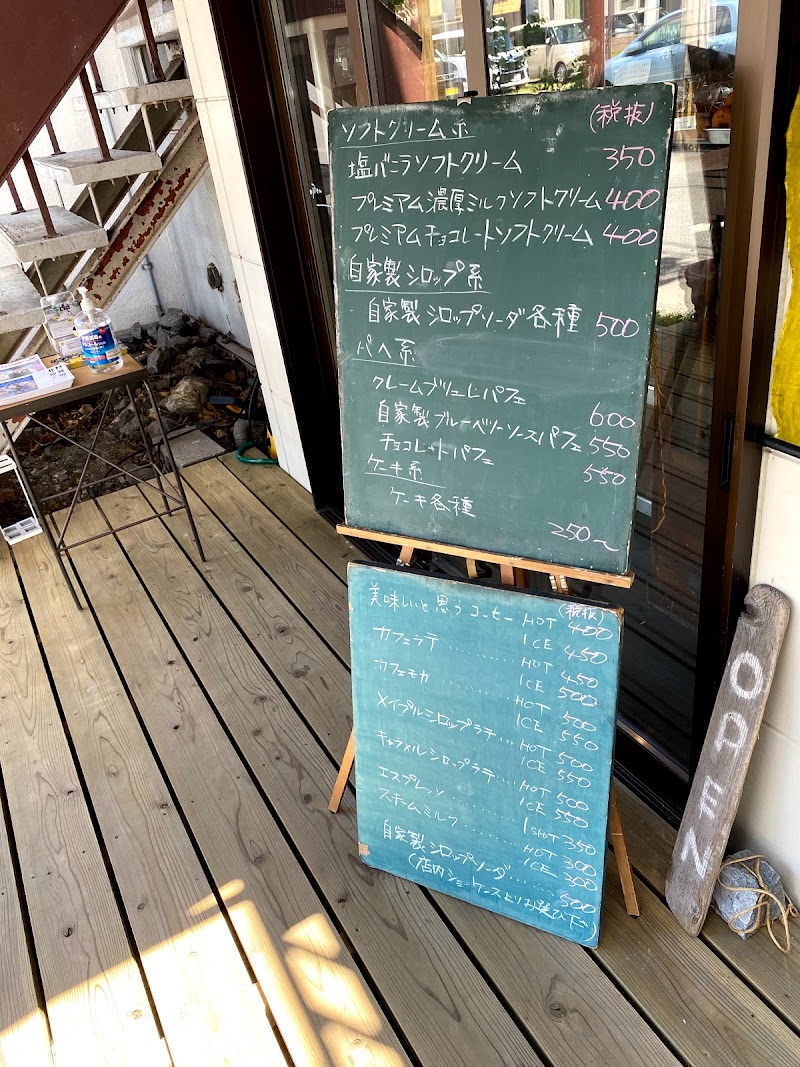 ソフトクリーム系 (税抜)
塩バニラソフトクリーム 350
プレミアム濃厚ミルクソフトクリーム 400
プレミアムチョコレートソフトクリーム 400
自家製シロップ系
自家製シロップソーダ各種 500
パヘ系
クレームブリュレパフェ 600
自家製ブルーベリーソースパフェ 550
チョコレートパフェ 550
ケーキ系
ケーキ各種 250~
(税抜)
美味しいと思うコーヒー HOT 400
ICE 450
カフェラテ.......... HOT 450
ICE 500
カフェモカ.......... HOT 500
ICE 550
メイプルシロップラテ... HOT 500
ICE 550
キャラメルシロップラテ... HOT 500
ICE 550
エスプレッソ.......... 1 SHOT 350
スチームミルク........ HOT 300
ICE 300
自家製シロップソーダ....... 500
(店内ショーケースよりお選び下さい)
OPEN